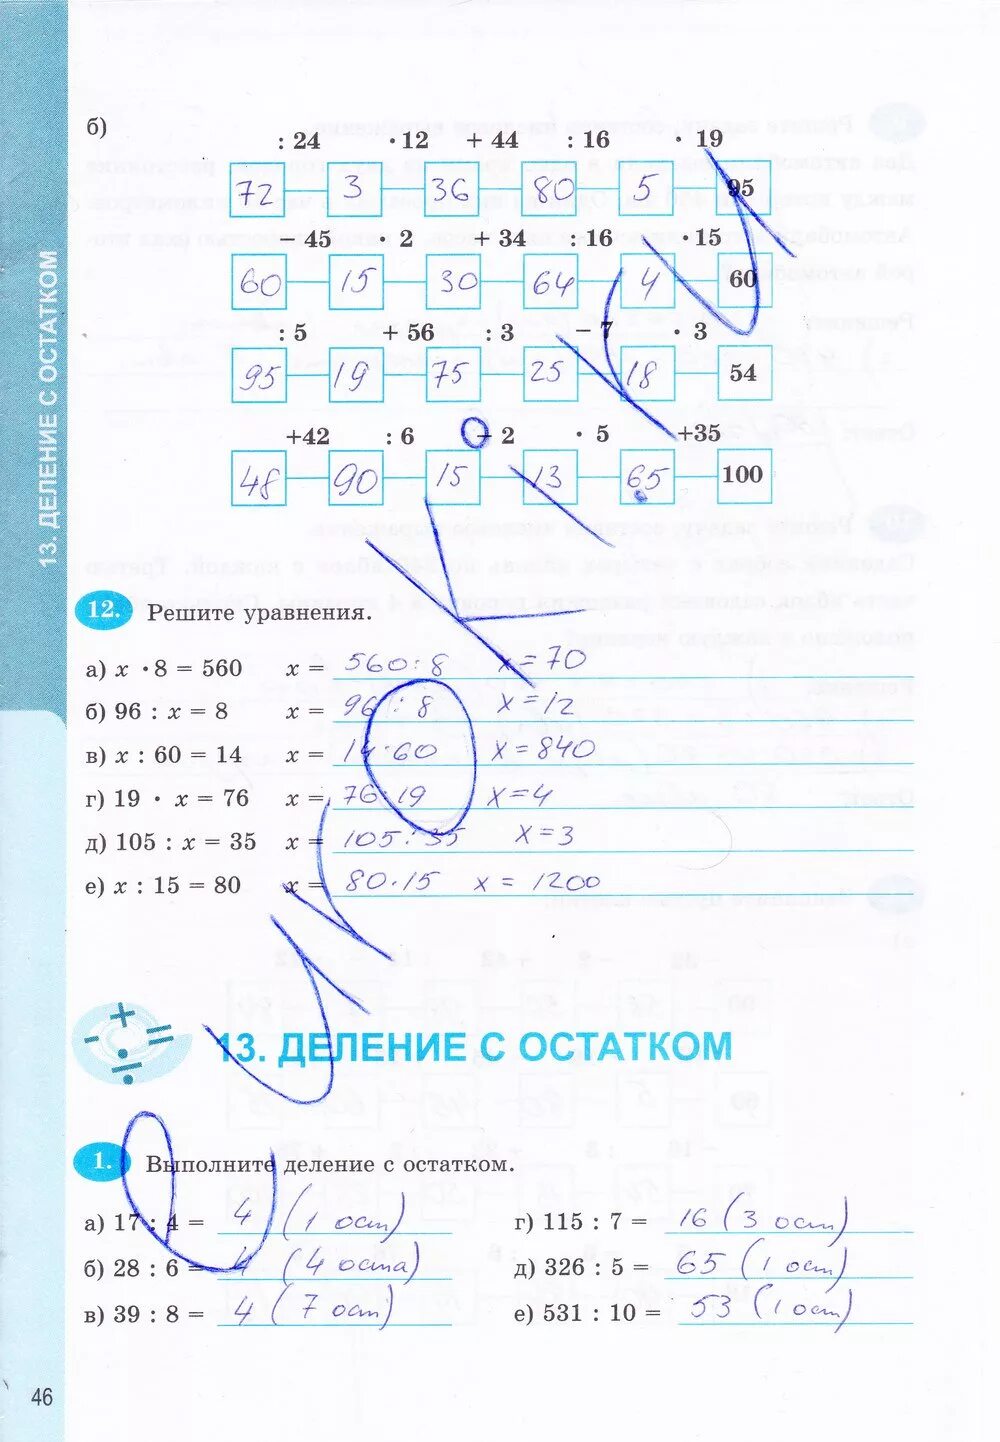 б)
: 24 · 12 + 44 : 16 · 19
72 3 36 80 5 95
− 45 · 2 + 34 : 16 · 15
60 15 30 64 4 60
: 5 + 56 : 3 − 7 · 3
95 19 75 25 18 54
+42 : 6 − 2 · 5 +35
48 90 15 13 65 100
12. Решите уравнения.
а) x · 8 = 560 x = 560 : 8 x = 70
б) 96 : x = 8 x = 96 : 8 x = 12
в) x : 60 = 14 x = 14 · 60 x = 840
г) 19 · x = 76 x = 76 : 19 x = 4
д) 105 : x = 35 x = 105 : 35 x = 3
е) x : 15 = 80 x = 80 · 15 x = 1200
13. ДЕЛЕНИЕ С ОСТАТКОМ
1. Выполните деление с остатком.
а) 17 : 4 = 4 (1 ост)
б) 28 : 6 = 4 (4 оста)
в) 39 : 8 = 4 (7 ост)
г) 115 : 7 = 16 (3 ост)
д) 326 : 5 = 65 (1 ост)
е) 531 : 10 = 53 (1 ост)
13. ДЕЛЕНИЕ С ОСТАТКОМ
46